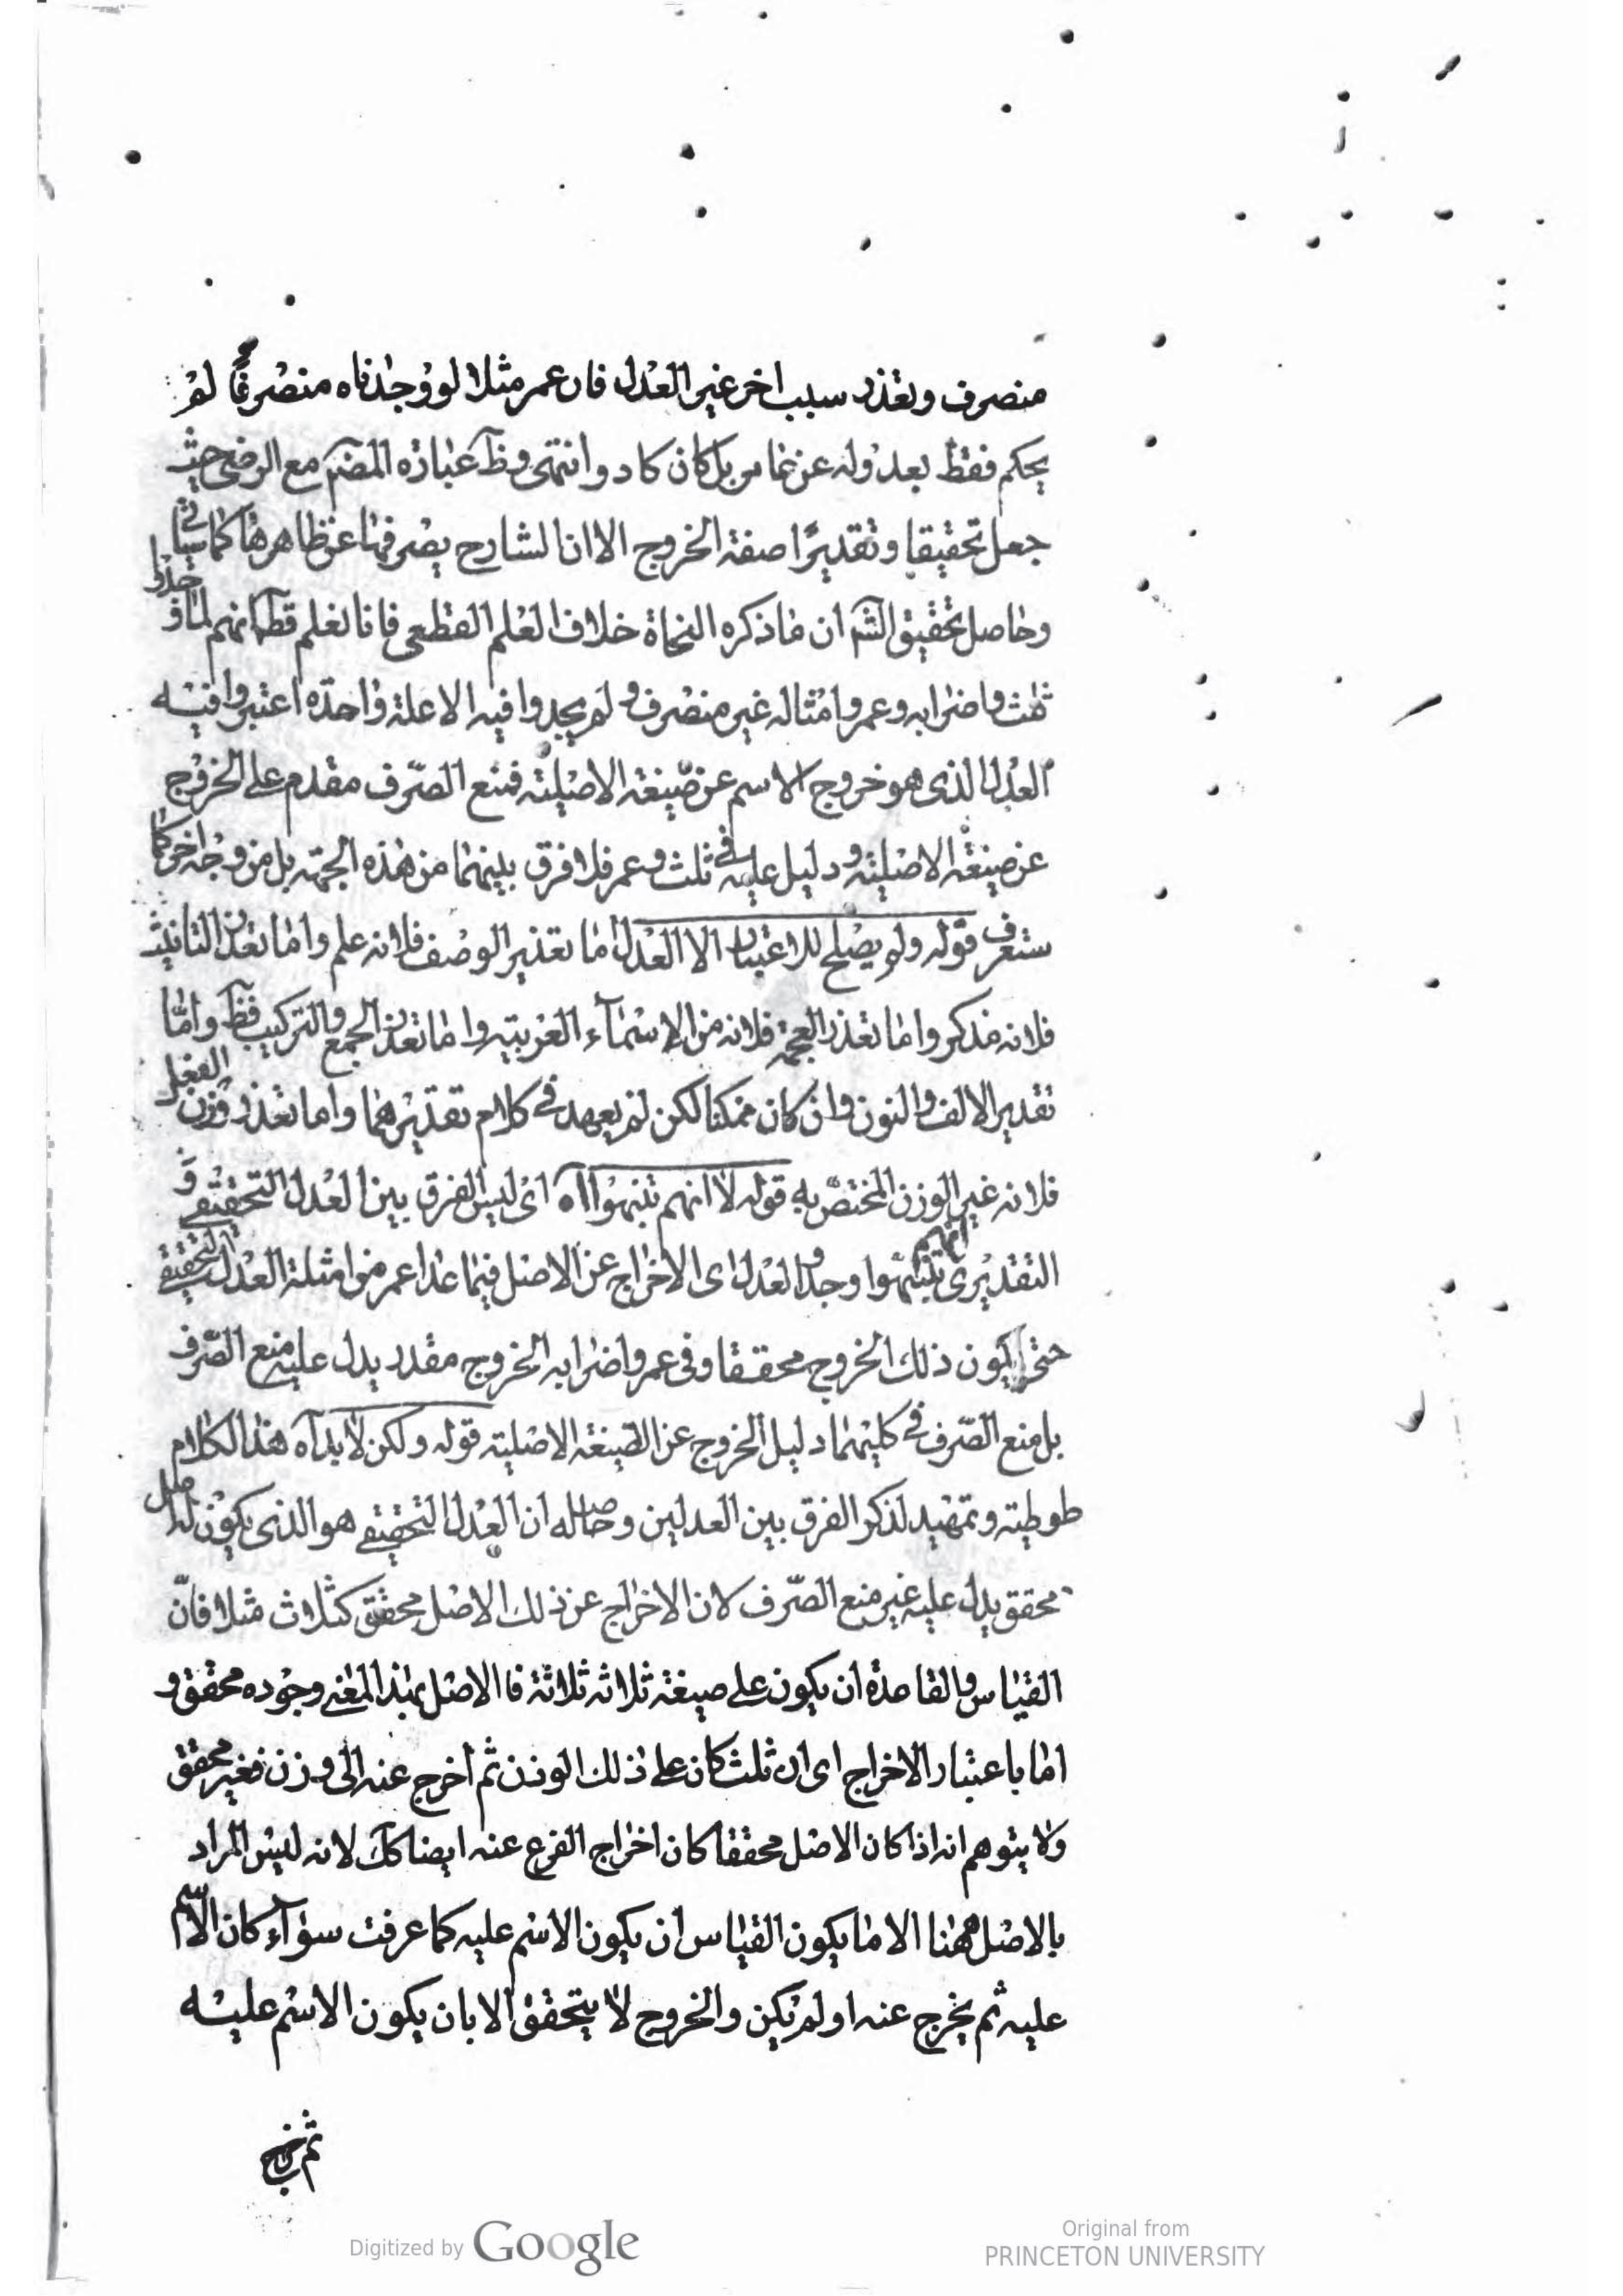 منصرف وتعذر سبب اخر غير العدل فان عمر مثلا لو وجدناه منصرفا لم
يحكم فقط بعدوله عن عامر بل كان كا دو انتهى وظ عبارة المصنم مع الرضى حيث
جعل تحقيقا وتقديرا صفة الخروج الا ان الشارح يصرفها عن ظاهرها كما سيأتي
وحاصل تحقيق الشم ان ما ذكره النحاة خلاف العلم القطعى فانا نعلم قطعا انهم لما وجدوا
ثلث واضرابه وعمر وامثاله غير منصرف ولم يجدوا فيه الا علة واحدة اعتبروا فيه
العدل الذى هو خروج الاسم عن صيغة الاصلية فمنع الصرف مقدم على الخروج
عن صيغة الاصلية ودليل عليه فى ثلث وعمر فلا فرق بينهما من هذه الجهة بل من وجه اخر كما
ستعرف قوله ولم يصلح للاعتبار الا العدل اما تعذير الوصف فلانه علم واما تعذر التانيث
فلانه مذكر واما تعذر العجمة فلانه من الاسماء العربية واما تعذر الجمع والتركيب فظ واما
تقدير الالف والنون وان كان ممكنا لكن لم يعهد فى كلام تقديرهما واما تعذر وزن الفعل
فلانه غير الوزن المختص به قوله لا انهم تنبهوا اه اى ليس الفرق بين العدل التحقيقى و
التقديرى انهم تنبهوا وجدوا العدل اى الاخراج عن الاصل فيما عدا عمر من امثلة العدل التحقيقى
حتى يكون ذلك الخروج محققا وفى عمر واضرابه الخروج مقدر يدل عليه منع الصرف
بل منع الصرف فى كليهما دليل الخروج عن الصيغة الاصلية قوله ولكن لا بد اه هذا الكلام
طوطية وتمهيد لذكر الفرق بين العدلين وحاصله ان العدل التحقيقى هو الذى يكون له اصل
محقق يدل عليه غير منع الصرف لان الاخراج عن ذلك الاصل محقق كثلاث مثلا فان
القياس والقاعدة ان يكون على صيغة ثلاثه ثلاثة فا الاصل بهذا المعنى وجوده محقق و
اما باعتبار الاخراج اى ان ثلث كان على ذلك الوزن ثم اخرج عنه الى وزن فغير محقق
ولا يتوهم انه اذا كان الاصل محققا كان اخراج الفرع عنه ايضا كك لانه ليس المراد
بالاصل ههنا الا ما يكون القياس ان يكون الاسم عليه كما عرفت سوآء كان الاسم
عليه ثم يخرج عنه او لم يكن والخروج لا يتحقق الا بان يكون الاسم عليه
ثم يخرج
Digitized by Google
Original from
PRINCETON UNIVERSITY